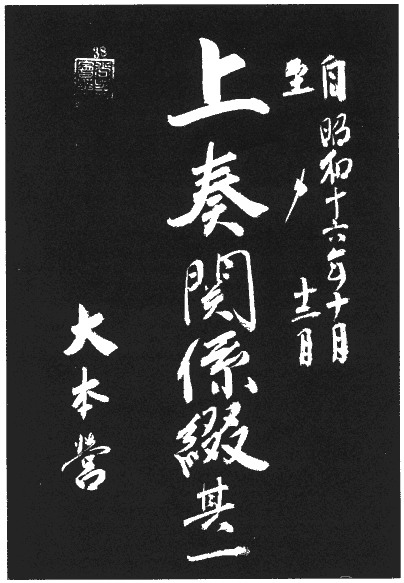 自昭和十六年十月
至〃十二月
上奏関係綴其一
大本營